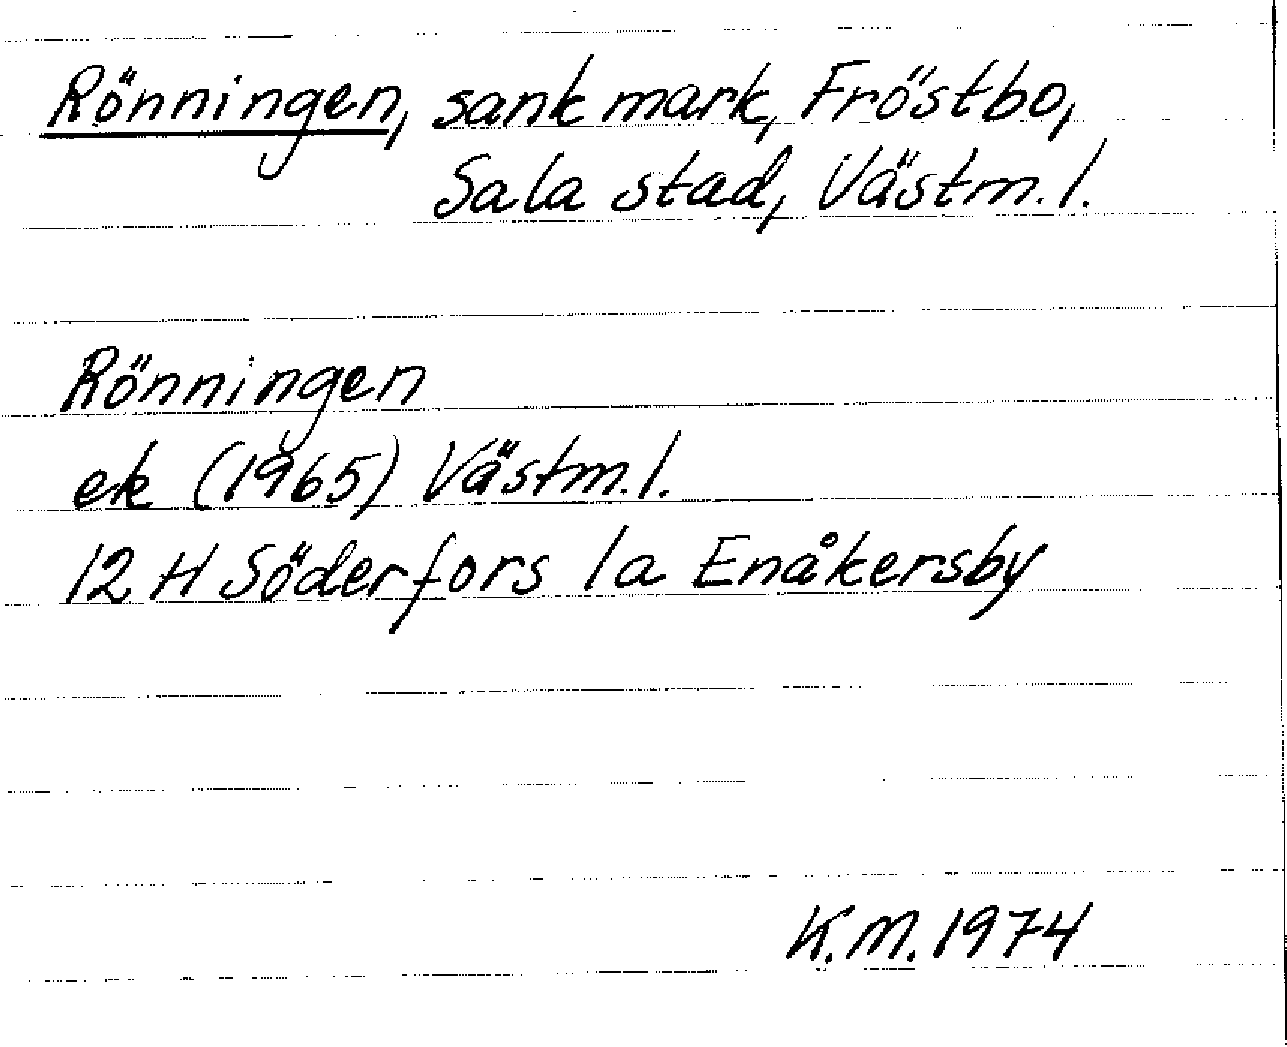 Rönningen, sank mark, Fröstbo,
Sala stad, Västm.l.
Rönningen
ek (1965) Västm.l.
12 H Söderfors 1a Enåkersby
K.M. 1974